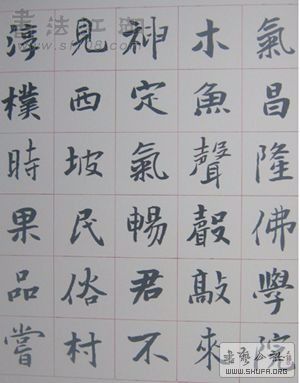 氣昌隆佛學院
木魚聲聲敲來
神定氣暢君不
見西坡民俗村
淳樸時果品嘗
書法江湖
www.sf108.com
WWW.SHUFA.ORG